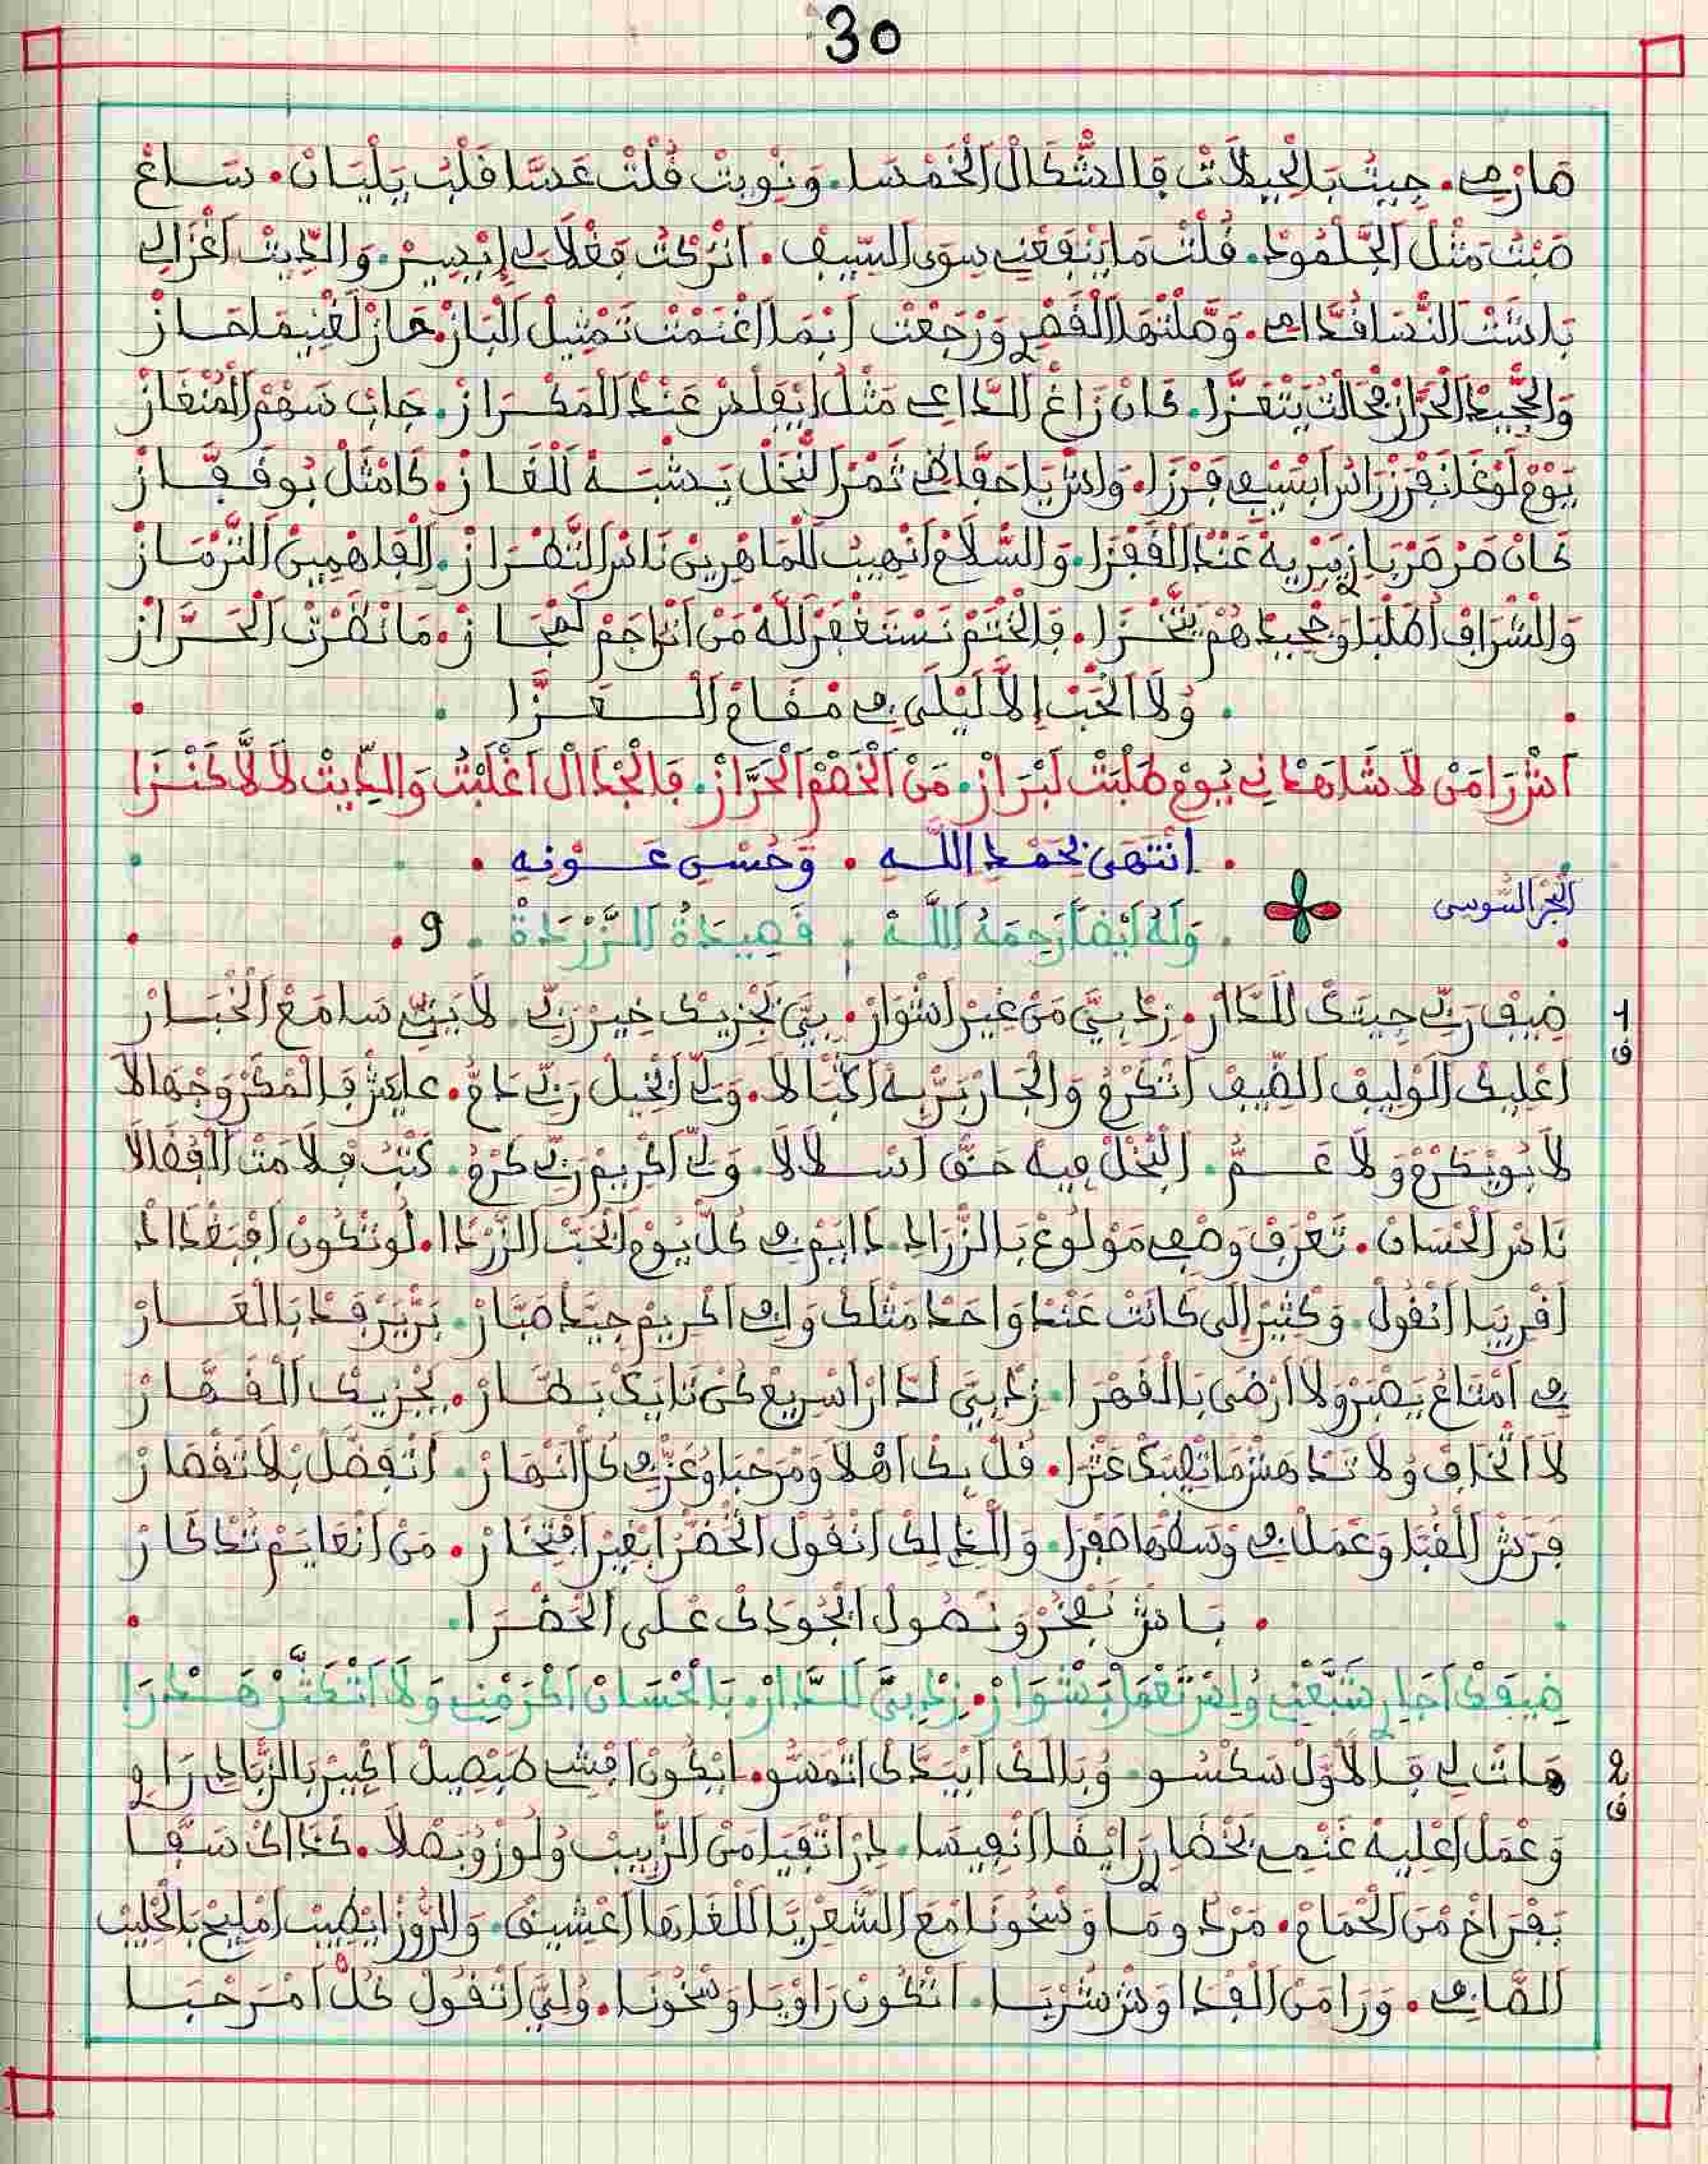 30
صَارِي. جِيتْ بَالْحِيلَاتْ فَالشّْكَالْ الْخَمْسَا. وَنْوِيتْ قُلْتْ عَسَّا قَلْبُ يَلْيَانْ. سَاعْ
صَبْتُ مَثْلْ الجَّلْمُودْ. قُلْتْ مَا يَنْفَعْنِي سِوَى السِّيفْ. اتْرَكْتْ فَعْلَا لِي إِبْدِيسْ. وَالدِّيتْ اغْزَالِي
بَاشَتْ النّْسَا قُدَّامِي. وَصَّلْتْهَا لَلْقْصَرْ وَرْجَعْتْ ابْمَا اغْنَمْتْ تَمْثِيلْ الْبَازْ. حَازْ لَغْنِيمَا حَازْ
وَالجّْحِيدْ الْحَرَّازْ فْحَالْتُ يَتْعَزَّا. كَانْ زَاغْ الدَّاعِي مَثْلُ ايْقَلَّشْ عَنْدْ الْمَكْرَازْ. جَابْ سَهْمْ الْمُنْغَازْ
يَوْمْ لَوْغَا نَفْرَزْ رَاسُ ابْسَيْفِي فَرْزَا. وَاشْ يَا حَفَّاظِي ثَمْرْ النّْخَلْ يَشْبَهْ لَلْقَازْ. كَامْثَلْ بُوفَقَّازْ
كَانْ صَرْصَرْ بَازِي يَرْيِهْ عَنْدْ الْقَفْزَا. وَالسّْلَامْ انْهِيبُ لَلْمَاهْرِينْ نَاسْ التَّطْرَازْ. الْفَاهْمِينْ التَّرْمَازْ
وَالشّْرَافْ اُطَلْبَا وَجْحِيدْهُمْ يَتَّخْزَا. فَالْخْتَمْ نَسْتَغْفَرْ لَلَّهْ مَنْ اتْرَاجَمْ لَهْجَازْ. مَا نْظَرْتْ الْحَرَّازْ
وُلَا الْحْبّْ إِلَّا لَيْلَى فِي مْقَامْ الْعَزَّا
اشْ رَا مَنْ لَا شَاهَدْنِي يُومْ طَلْبَتْ لَبْرَازْ. مَنْ الْخَصْمْ الْحَرَّازْ. فَالْجْدَالْ اغْلَبْتُ وَالدِّيتْ لَالَّا كَنْزَا
انْتَهَى بِحَمْدِ اللَّهِ. وَحُسْنِ عَوْنِهِ
الْبَحْرُ السُّوسِي
وَلَهُ أَيْضًا رَحِمَهُ اللَّهْ. قَصِيدَةُ الزَّرْدَةْ. 9
1
ف
ضِيفْ رَبِّي جِيتَكْ لَلدَّارْ. زِدْ بِيَّ مَنْ غِيرْ اشْوَارْ. بِيَّ يَجْزِيكْ خِيرْ رَبِّي. لَا يَنِّي سَامَعْ الْخْبَارْ
اعْلِيكْ الْوْلِيفْ الضِّيفْ اتْكَرْمُ وَالْجَارْ بَرّْ بِهْ اكْبَالَا. وَلِّي ابْخِيلْ رَبِّي دَمُّ. عَايَشْ فَالْمْكَرْ وَجْهَالَا
لَا بُو يْكَرْمُ وَلَا عَمُّ. الْبُخْلْ فِيهْ حَقّْ اسْلَالَا. وَلِّي اكْرِيمْ رَبِّي كَرْمُ. كَتْبُ فْلَامَتْ الْفْضَالَا
نَاسْ الْحْسَانْ. تَعْرَفْ وَصْفِي مَوْلُوعْ بَالزّْرَادِي. دَايَمْ فِي كُلّْ يُومْ انْحَبّْ الزَّرْدَا. لُو تْكُونْ افْبَغْدَادْ
اقْرِيبَا انْقُولْ. وَكْثِيرْ إِلَى كَانَتْ عَنْدْ وَاحَدْ مَثْلَكْ وَافِي اكْرِيمْ جِيَّدْ صَبَّارْ. بَزّْبَزْ فَدّْ بَالْعَارْ
فِي امْتَاعُ يَصْبَرْ وَلَا ارْضَى بَالْقَهْرَا. زِدْ بِيَّ لَدَّارْ اسْرِيعْ كُنْ تَايَكْ بَطَّارْ. يَجْزِيكْ الْقَهَّارْ
لَا اتْخَافْ وُلَا تَدْهَشْ مَا تْصِيبَكْ عَثْرَا. قُلْ بِكْ اهْلَا وَمْرَحْبَا وُعَزِّي كُلّْ انْهَارْ. اتْفَضَّلْ بْلَا تَقْصَارْ
فَرَّشْ الْقُبَّا وَعْمَلْ لِي وَسْطْهَا صَفْرَا. وَالْدَّالَكْ انْقُولْ الْخُضْرَا ابْغِيرْ افْتِخَارْ. مَنْ انْعَايَمْ تَدْكَارْ
بَاشْ نَفْخَرْ وَنْصُولْ ابْجُودَكْ عَلَى الْحَضْرَا
ضِيفَكْ آجَارِي شَبَّعْنِي وُلِسْ تَعْمَلْ بَشْوَارْ. زِدْ بِيَّ لَلدَّارْ. بَالْحْسَانْ اكْرَمْنِي وَلَا اتْكَثَّرْ هَدْرَا
2
ف
هَاتْ لِي فَالْأَوَّلْ سَكْسُو. وُبَالَكْ ابْيَدَّكْ اتْمَسُّو. ايْكُونْ افْشِي طَبْصِيلْ اكْبِيرْ بَالزّْبَادِي رَاوِي
وَعْمَلْ اعْلِيهْ غَنْمِي بَخْضَارِي رَايْقَا انْفِيسَا. دِرْ اتْقَيَا مَنْ الزّْبِيبْ وُلُوزْ وُبَصْلَا. كَدَاكْ سَفَّا
بَفْرَاخْ مْنْ الْحْمَامْ. مَرْدُومَا وَسْخُونَا مَعْ الشَّعْرِيَّا اللّْغَاهَا اعْشِيقْ. وَالرُّوزْ ايْطِيبْ امْلِيحْ بَالْحْلِيبْ
الصَّافِي. وَرَا مَنْ الْغْدَا وَشْ شُرْبَا. اتْكُونْ رَاوْيَا وَسْخُونَا. وُلِيَّ اتْقُولْ كُلّْ امْرَحْبَا